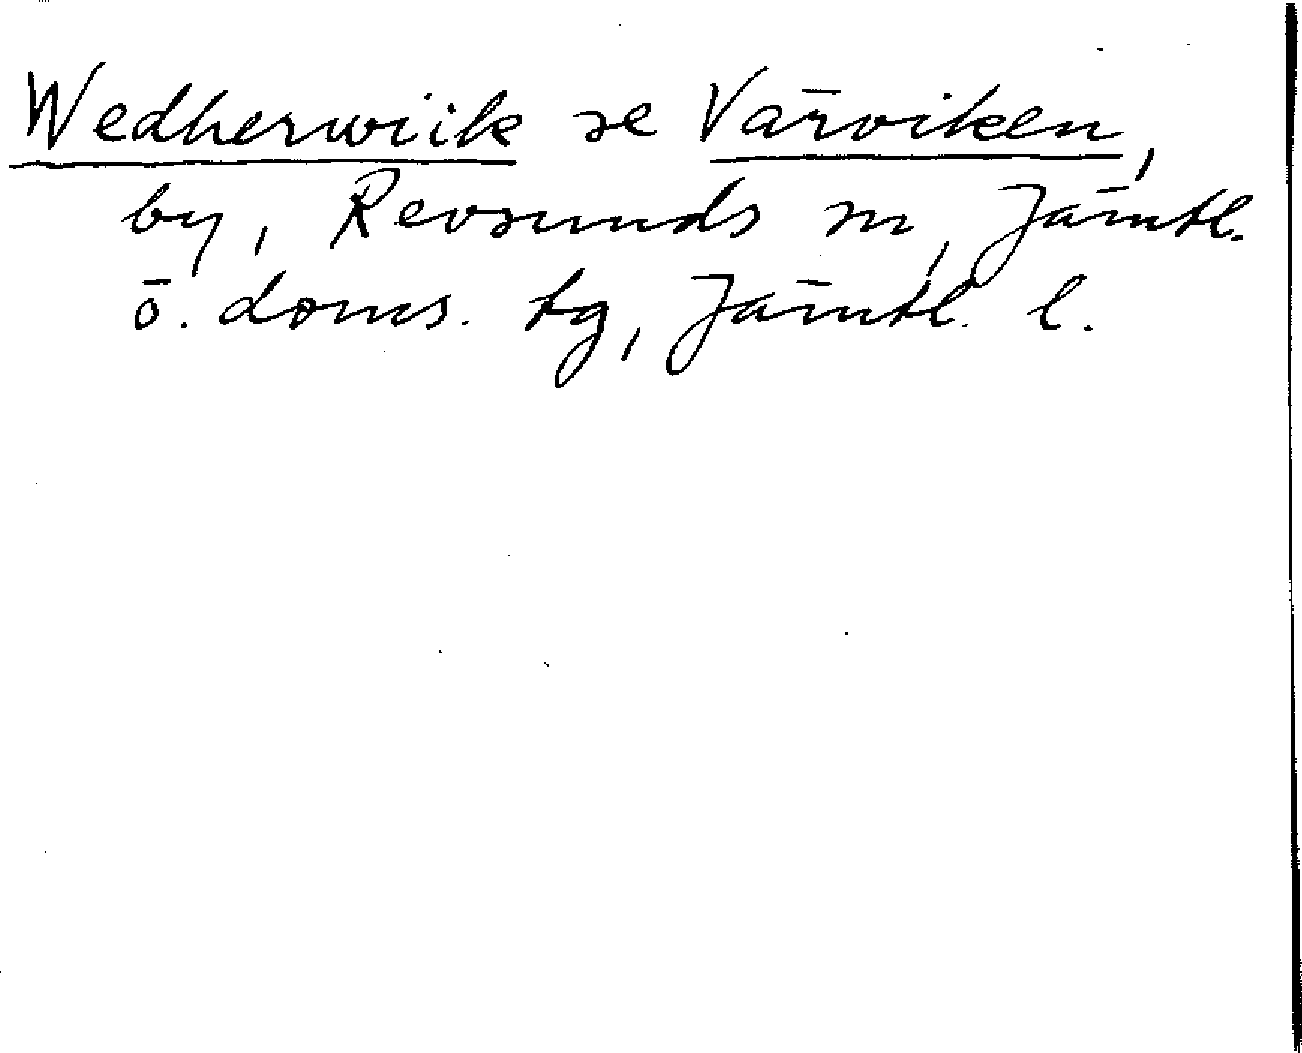 Wedherwiik se Värviken,
by, Revsunds sn, Jämtl.
ö. doms. tg, Jämtl. l.